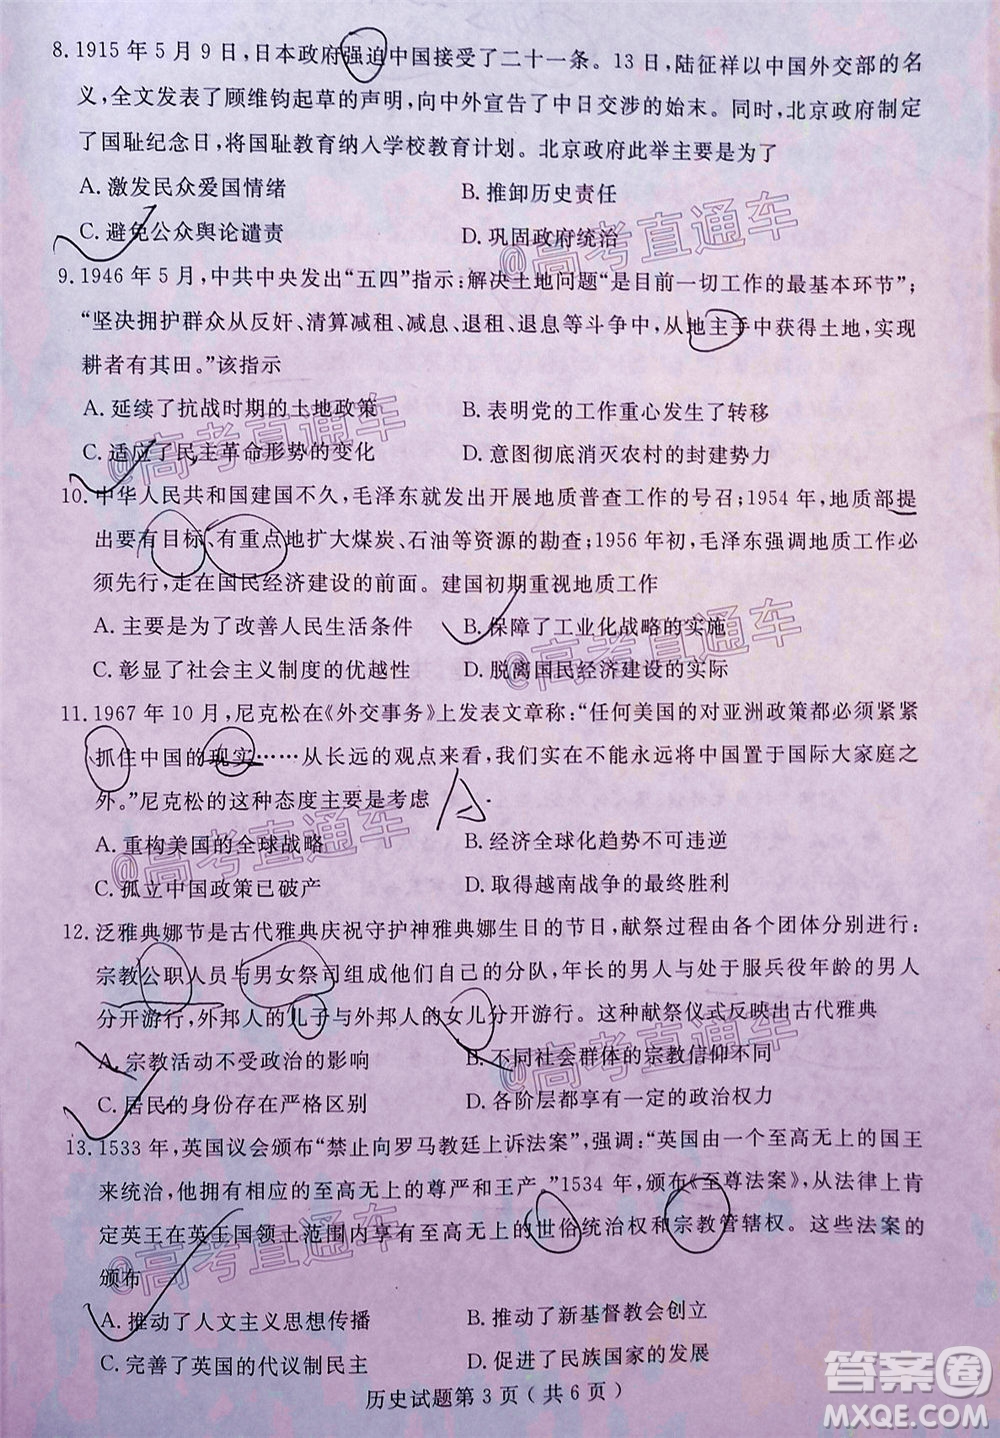 8. 1915 年 5 月 9 日，日本政府强迫中国接受了二十一条。13 日，陆征祥以中国外交部的名
义，全文发表了顾维钧起草的声明，向中外宣告了中日交涉的始末。同时，北京政府制定
了国耻纪念日，将国耻教育纳入学校教育计划。北京政府此举主要是为了
A. 激发民众爱国情绪 B. 推卸历史责任
C. 避免公众舆论谴责 D. 巩固政府统治
@高考直通车
9. 1946 年 5 月，中共中央发出“五四”指示：解决土地问题“是目前一切工作的最基本环节”；
“坚决拥护群众从反奸、清算减租、减息、退租、退息等斗争中，从地主手中获得土地，实现
耕者有其田。”该指示
A. 延续了抗战时期的土地政策 B. 表明党的工作重心发生了转移
C. 适应了民主革命形势的变化 D. 意图彻底消灭农村的封建势力
@高考直通车
10. 中华人民共和国建国不久，毛泽东就发出开展地质普查工作的号召；1954 年，地质部提
出要有目标、有重点地扩大煤炭、石油等资源的勘查；1956 年初，毛泽东强调地质工作必
须先行，走在国民经济建设的前面。建国初期重视地质工作
A. 主要是为了改善人民生活条件 B. 保障了工业化战略的实施
C. 彰显了社会主义制度的优越性 D. 脱离国民经济建设的实际
@高考直通车
11. 1967 年 10 月，尼克松在《外交事务》上发表文章称：“任何美国的对亚洲政策都必须紧紧
抓住中国的现实……从长远的观点来看，我们负担不起永远将中国置于国际大家庭之
外。”尼克松的这种态度主要是考虑
A. 重构美国的全球战略 B. 经济全球化趋势不可违逆
C. 孤立中国政策已破产 D. 取得越南战争的最终胜利
@高考直通车
12. 泛雅典娜节是古代雅典庆祝守护神雅典娜生日的节日，献祭过程由各个团体分别进行：
宗教公职人员与男女祭司组成他们自己的分队，年长的男人与处于服兵役年龄的男人
分开游行，外邦人的儿子与外邦人的女儿分开游行。这种献祭仪式反映出古代雅典
A. 宗教活动不受政治的影响 B. 不同社会群体的宗教信仰不同
C. 居民的身份存在严格区别 D. 各阶层都享有一定的政治权力
@高考直通车
13. 1533 年，英国议会颁布“禁止向罗马教廷上诉法案”，强调：“英国由一个至高无上的国王
来统治，他拥有相应的至高无上的尊严和王产。”1534 年，颁布《至尊法案》，从法律上肯
定英王在英王国领土范围内享有至高无上的世俗统治权和宗教管辖权。这些法案的
颁布
@高考直通车
A. 推动了人文主义思想传播 B. 推动了新基督教会创立
C. 完善了英国的代议制民主 D. 促进了民族国家的发展
历史试题第 3 页（共 6 页）
答案圈
MXQE.COM